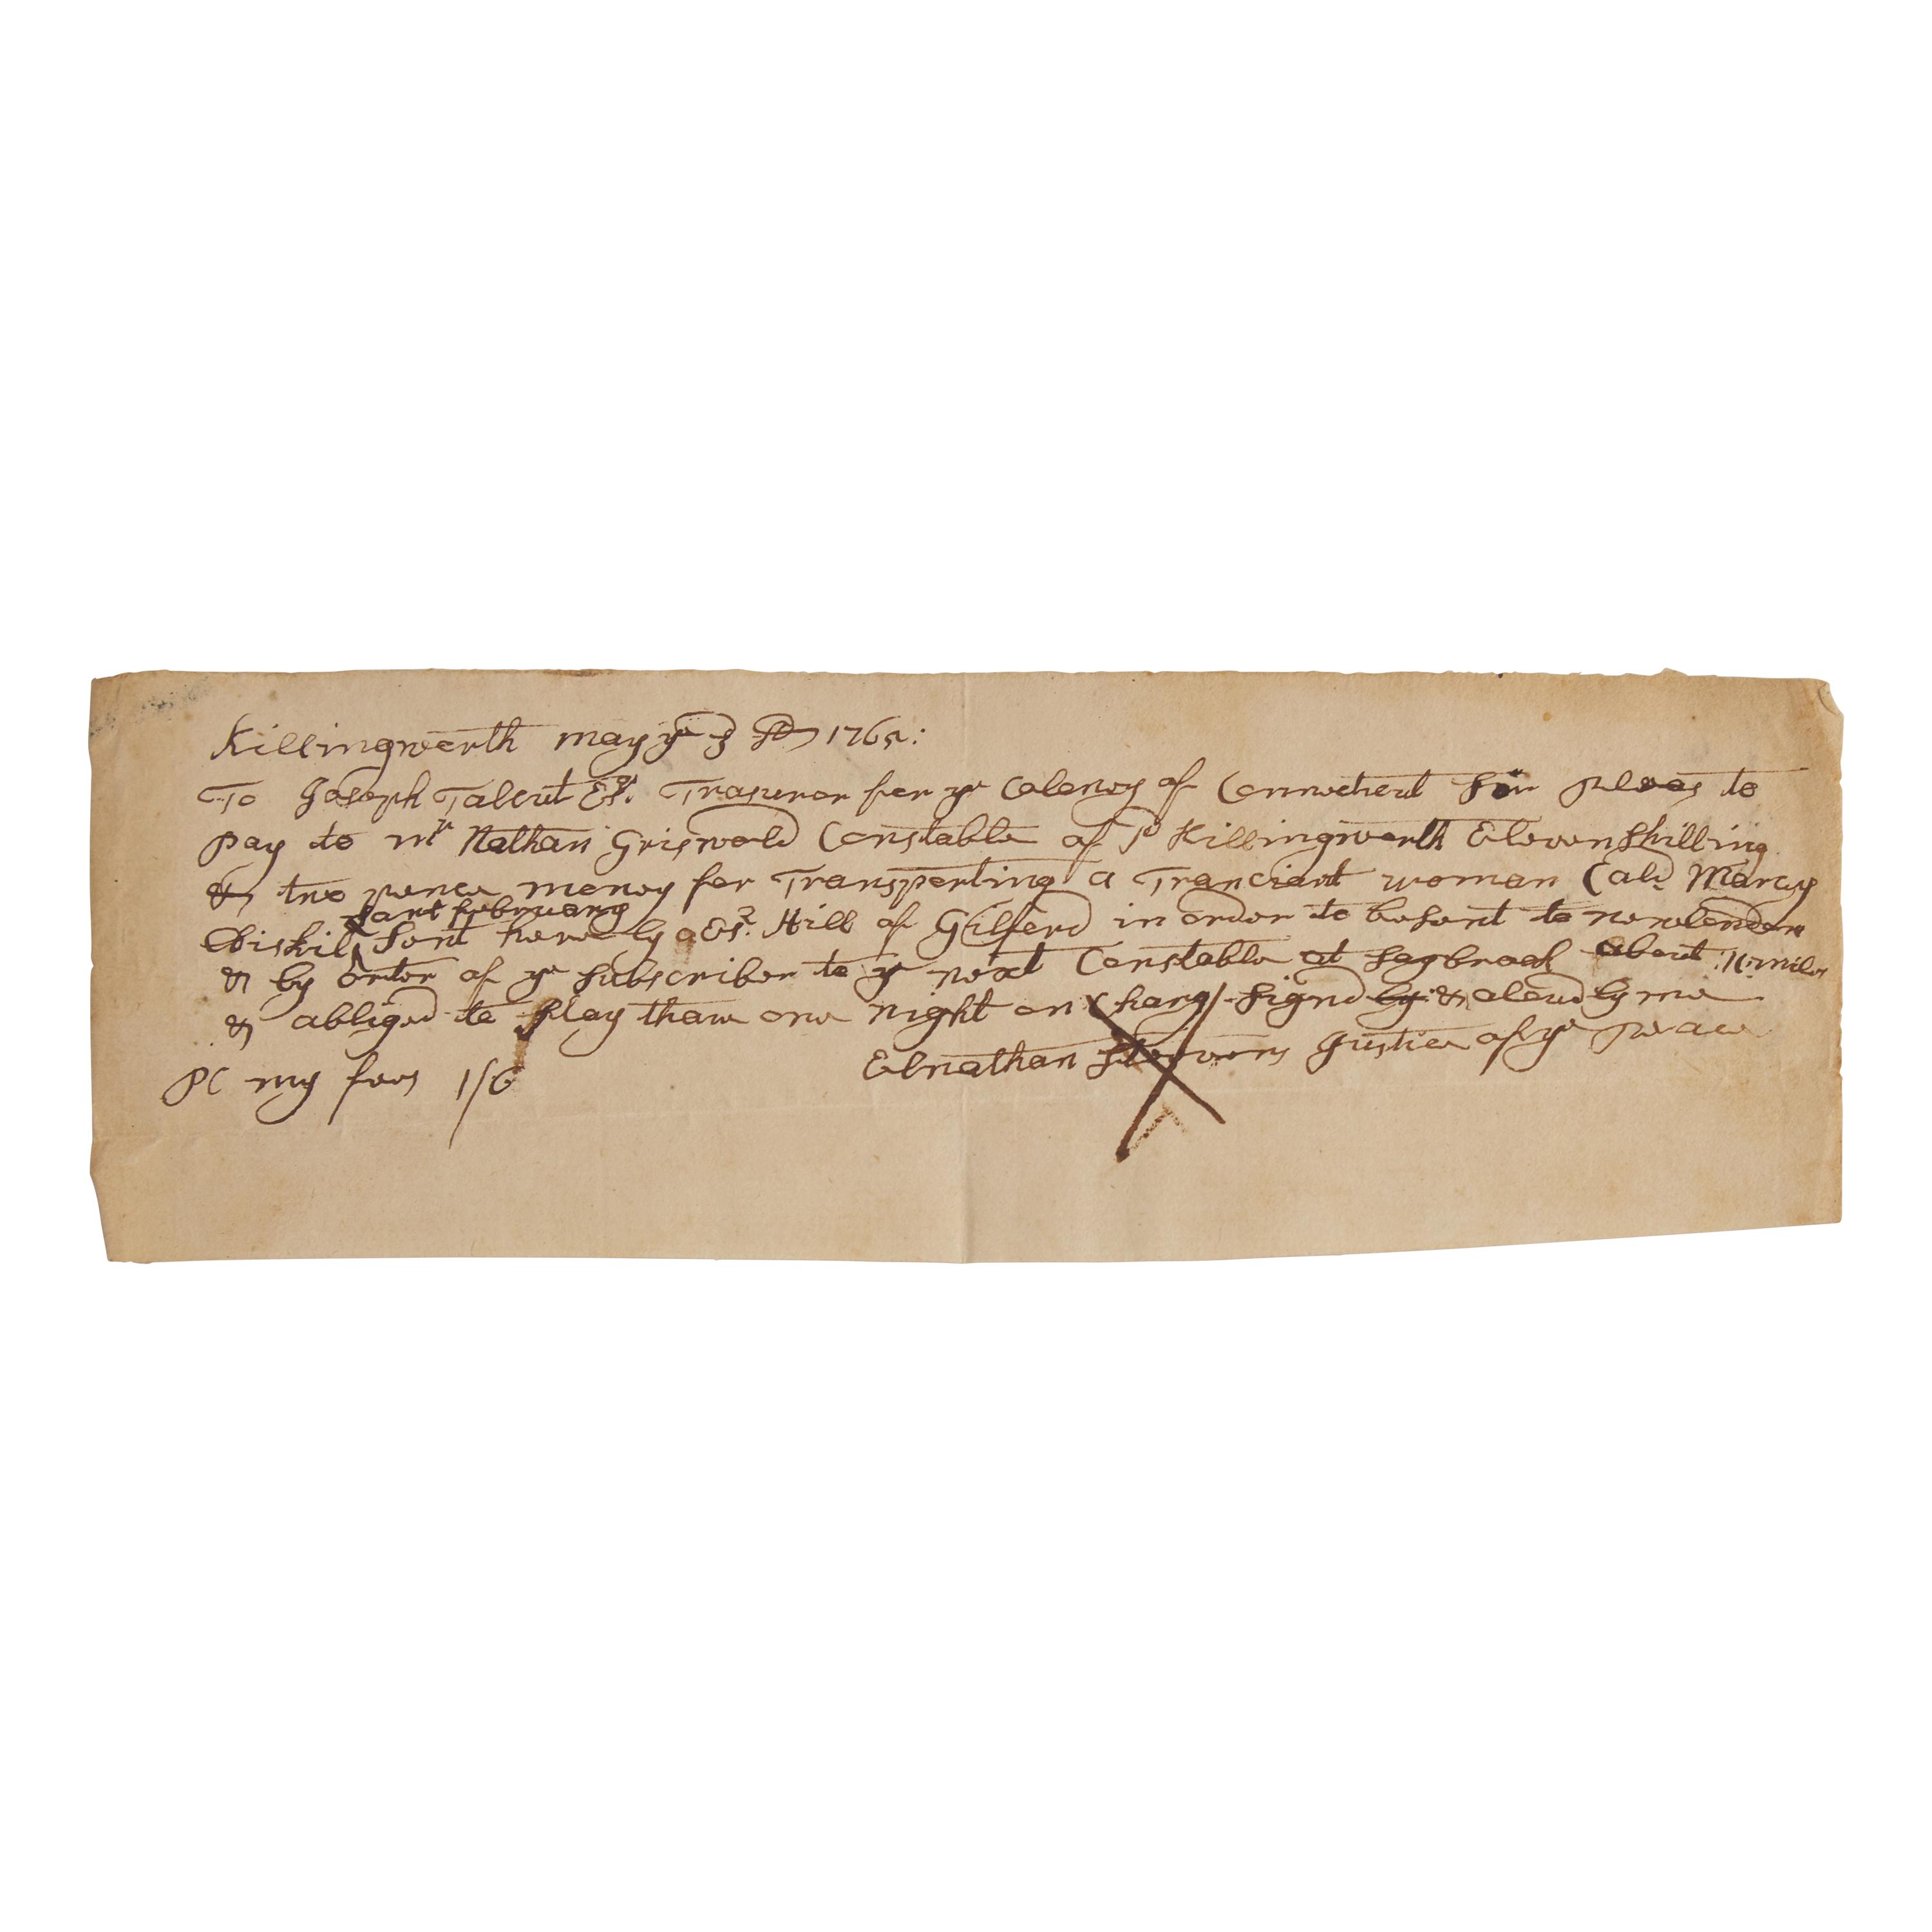 Killingworth may ye 3 AD 1765:
To Joseph Talcut Esqr. Trasurer for ye Coleney of Connecticut Sir pleas to
pay to mr Nathan Griswold Constable of sd Killingworth Eleven shilling
& two pence money for Transporting a Tranciant woman Cald Marcy
last february
sent here by Esr. Hill of Gilford in order to be sent to newlondon
& by order of ye subscriber to ye next Constable at Saybrook about miles
& obliged to stay thare one night on Charg / Signd by & alowd by me
Elnathan Stevens Justice of ye peace
my fees 1/6